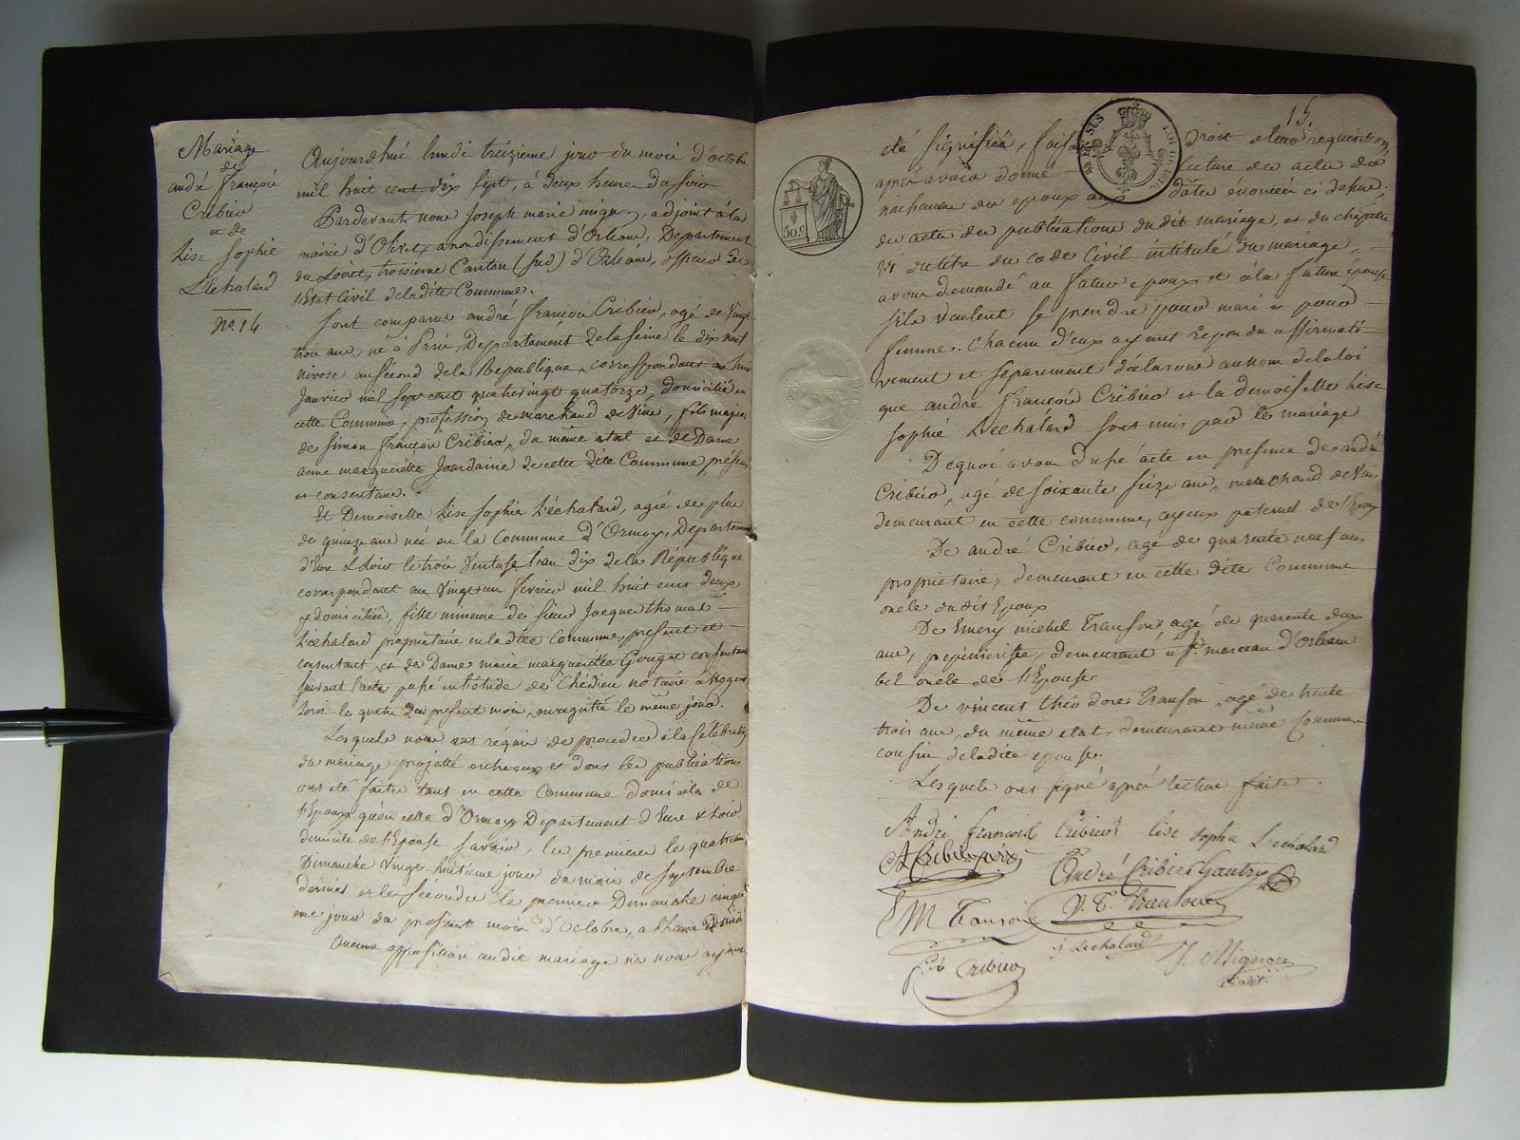 Mariage
de
andré françois
Cribier
et de
Lise Sophie
Lechalard
No. 14
Aujourdhui lundi treizieme jour du mois d'octobre
mil huit cent dix sept, à deux heures du soir
Pardevant nous Joseph marie mignon, adjoint à la
mairie d'Olivet, arrondissement d'Orléans, Departement
du Loiret, troisieme Canton (sud) d'Orléans, officier de
l'Etat Civil de ladite Commune.
sont comparus andré françois Cribier, agé de Vingt
trois ans, né à Departement de la seine le dix neuf
nivose an second de la Republique, correspondant au huit
Janvier mil sept cent quatre vingt quatorze, domicilié en
cette Commune, profession de marchand de Vins, fils majeur
de simon françois Cribier, du même état et de Dame
anne margueritte Jourdaine de cette dite Commune présens
et consentans.
Et Demoiselle Lise sophie Lechalard, agée de plus
de quinze ans née en la Commune d'Ormoy, Departement
d'Eure & Loir le trois Ventose l'an dix de la République
correspondant au Vingt un fevrier mil huit cent deux
domiciliée, fille mineure du sieur Jacques thomas
Lechalard propriétaire en la dite Commune, present et
consentant, et de Dame marie margueritte Gouget consentant
suivant l'acte passé en l'etude de Chédieu notaire à Nogent
le quatre du présent mois, enregistré le même jour.
Lesquels nous ont réquis de proceder à la Célébration
du mariage projetté entr'eux et dont les publications
ont été faites tant en cette Commune domicile de
l'Epoux qu'en celle d'Ormoy Departement d'Eure & Loir
de l'Epouse savoir, la premiere le quatrieme
Dimanche Vingt huitieme jour du mois de septembre
dernier et la seconde le premier Dimanche cinquie
me jour du présent mois d'Octobre, a l'heure de midi
Aucune opposition audit mariage ne nous ayant
15.
été signifiée, faisant droit à leur requisition,
après avoir donné lecture des actes de
naissance des epoux aux dates énoncées ci dessus,
des actes des publications du dit mariage, et du chapitre
VI du titre du code Civil intitulé du mariage,
avons demandé au futur epoux et à la future épouse
s'ils veulent se prendre pour mari et pour
femme. Chacun d'eux ayant répondu affirmati-
vement et séparement déclarons au nom de la loi
que andré françois Cribier et la demoiselle Lise
sophie Lechalard sont unis par le mariage
De quoi avons dressé acte en presence de andré
Cribier, agé de soixante seize ans, marchand de Vin,
demeurant en cette commune, ayeux paternel de l'Epoux
De andré Cribier, agé de quarante neuf ans
propriétaire, demeurant en cette dite Commune
oncle du dit Epoux
De Emery michel Transon agé de quarante deux
ans, pepinieriste, demeurant à St. marceau d'Orléans
bel oncle de l'Epouse
De vincent théodore Transon, agé de trente
trois ans, du même etat, demeurant même Commune
cousin de ladite epouse
Lesquels ont signé après lecture faite.
André françois Cribier lise sophie Lechalard
A Cribier père André Cribier Gautry
M Transon V. T. Transon
Cribier J Lechalard J. Mignon
adjt.